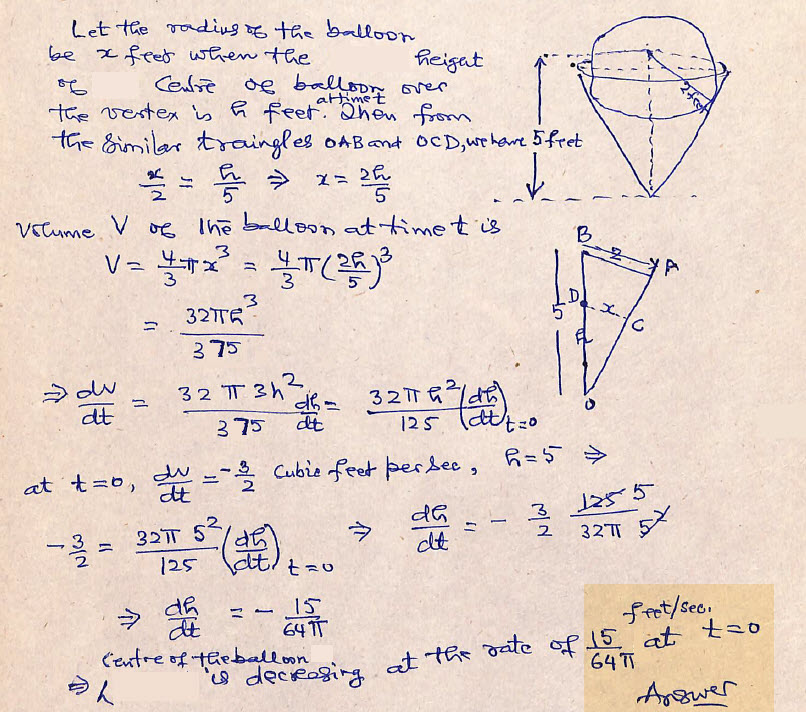 Let the radius of the balloon
be x feet when the height
of Centre of balloon over
the vertex is h feet. at time t Then from
the similar traingles OAB and OCD, we have
x/2 = h/5 ⇒ x = 2h/5
Volume V of the balloon at time t is
V = 4/3 π x³ = 4/3 π (2h/5)³
= 32πh³/375
⇒ dv/dt = 32 π 3h²/375 dh/dt = 32π h²/125 (dh/dt) t=0
at t=0, dv/dt = -3/2 Cubic feet per sec, h=5 ⇒
-3/2 = 32π 5²/125 (dh/dt) t=0 ⇒ dh/dt = - 3/2 125 5/32π 5²
⇒ dh/dt = - 15/64π
Centre of the balloon
⇒ h is decreasing at the rate of 15/64π feet/sec. at t=0
Answer
2 feet
5 feet
B
2
A
D
x
C
5
h
O